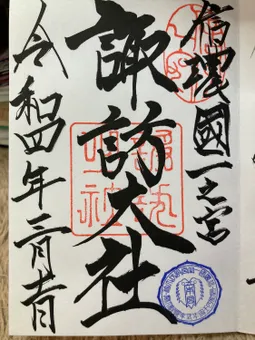 信濃國一之宮
諏訪大社
令和四年三月吉日